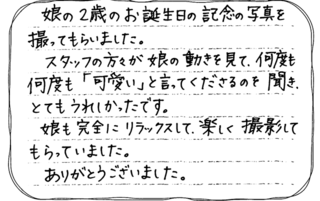 娘の2歳のお誕生日の記念の写真を
撮ってもらいました。
スタッフの方々が娘の動きを見て、何度も
何度も「可愛い」と言ってくださるのを聞き、
とてもうれしかったです。
娘も完全にリラックスして、楽しく撮影して
もらっていました。
ありがとうございました。